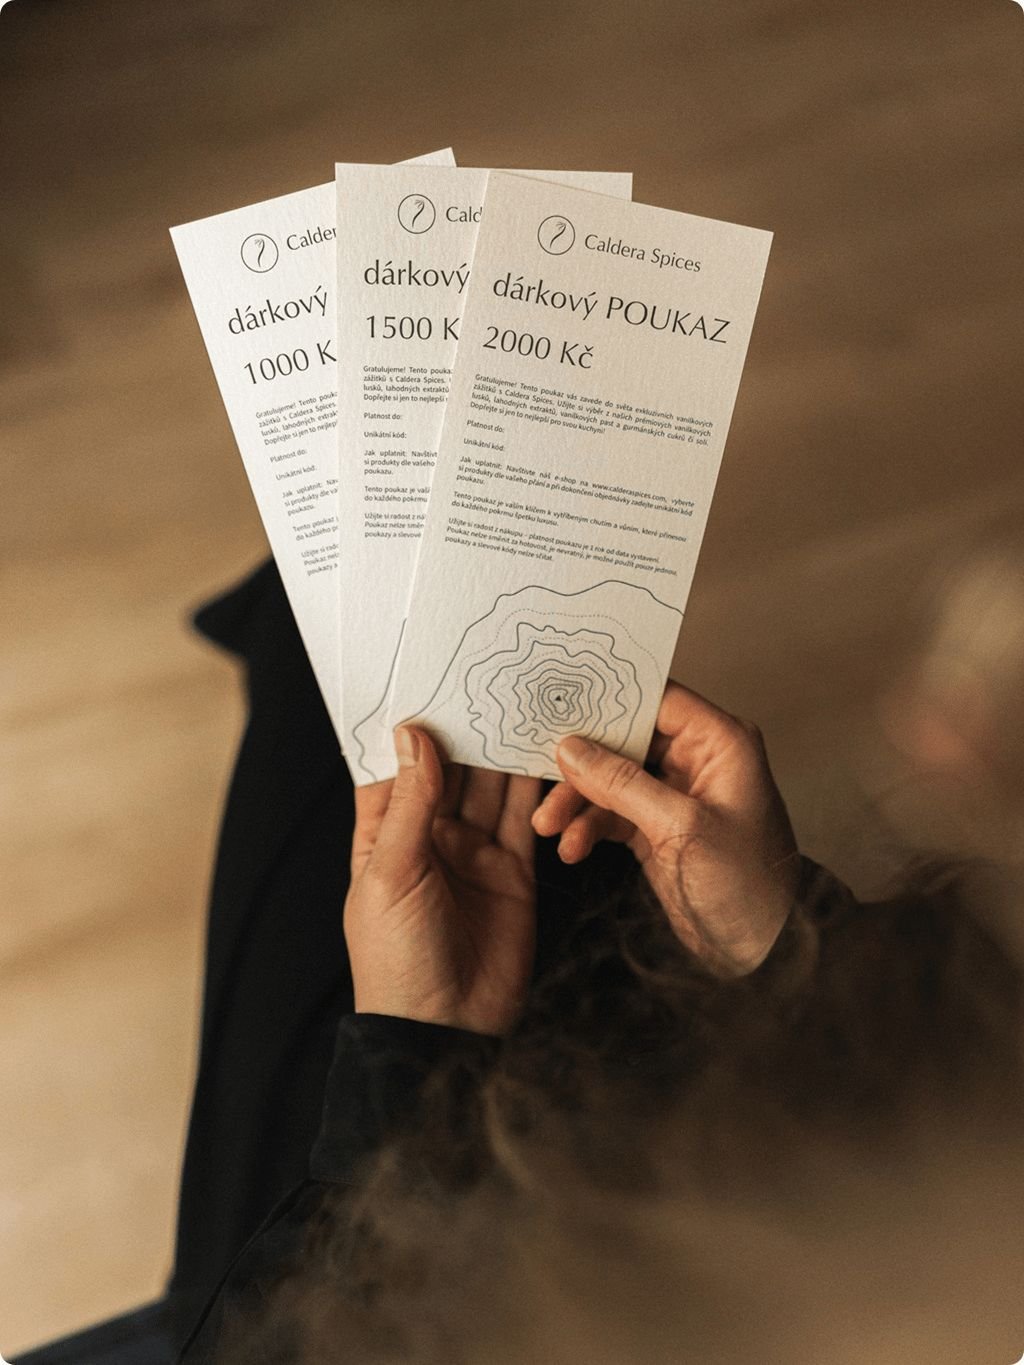 Calder
dárkový
1000 K
Gratulujeme! Tento pouk
zážitků s Caldera Spices.
lusků, lahodných extrak
Dopřejte si jen to nejlep
Platnost do:
Unikátní kód:
Jak uplatnit: Nav
si produkty dle va
poukazu.
Tento poukaz j
do každého po
Užijte si rado
Poukaz nelze
poukazy a
Cald
dárkový
1500 K
Gratulujeme! Tento pouka
zážitků s Caldera Spices.
lusků, lahodných extraktů
Dopřejte si jen to nejlepší
Platnost do:
Unikátní kód:
Jak uplatnit: Navštivt
si produkty dle vašeho
poukazu.
Tento poukaz je vaší
do každého pokrmu
Užijte si radost z ná
Poukaz nelze směn
poukazy a slevové
Caldera Spices
dárkový POUKAZ
2000 Kč
Gratulujeme! Tento poukaz vás zavede do světa exkluzivních vanilkových
zážitků s Caldera Spices. Užijte si výběr z našich prémiových vanilkových
lusků, lahodných extraktů, vanilkových past a gurmánských cukrů či solí.
Dopřejte si jen to nejlepší pro svou kuchyni!
Platnost do:
Unikátní kód:
Jak uplatnit: Navštivte náš e-shop na www.calderaspices.com, vyberte
si produkty dle vašeho přání a při dokončení objednávky zadejte unikátní kód
poukazu.
Tento poukaz je vaším klíčem k vytříbeným chutím a vůním, které přinesou
do každého pokrmu špetku luxusu.
Užijte si radost z nákupu – platnost poukazu je 1 rok od data vystavení.
Poukaz nelze směnit za hotovost, je nevratný, je možné použít pouze jednou,
poukazy a slevové kódy nelze sčítat.